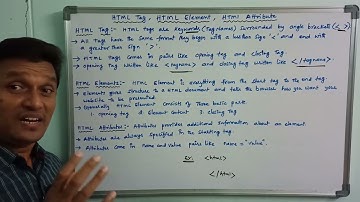 HTML Tag, HTML Element, HTML Attribute
HTML Tag:- HTML Tags are Keywords (Tag names) Surrounded by angle brackets (< >)
→ All Tags have the Same format they begin with a lesthan Sign '<' and end with
a greater than Sign '>'.
→ HTML Tags Comes in pairs like opening tag and closing Tag
→ Opening tag written like <tagname> and closing tag written like </tagname>
HTML Elements:- HTML Element is everything from the start tag to the end tag.
→ Elements gives structure to a HTML document and tells the browser how you want your
website to be presented.
→ Essentially HTML Element Consists of Three basic parts
1. opening tag 2. Element Content 3. closing Tag
HTML Attributes:- Attributes provides additional information about an element
→ Attributes are always Specified in the starting tag.
→ Attributes Come in name and value pairs like name = "value".
Ex: <html>
</html>